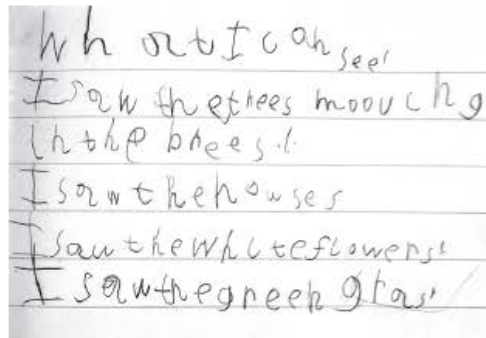 What I can see'
I saw the trees moouing
in the brees.
I saw the howses
I saw the white flowers'
I saw the green gras'